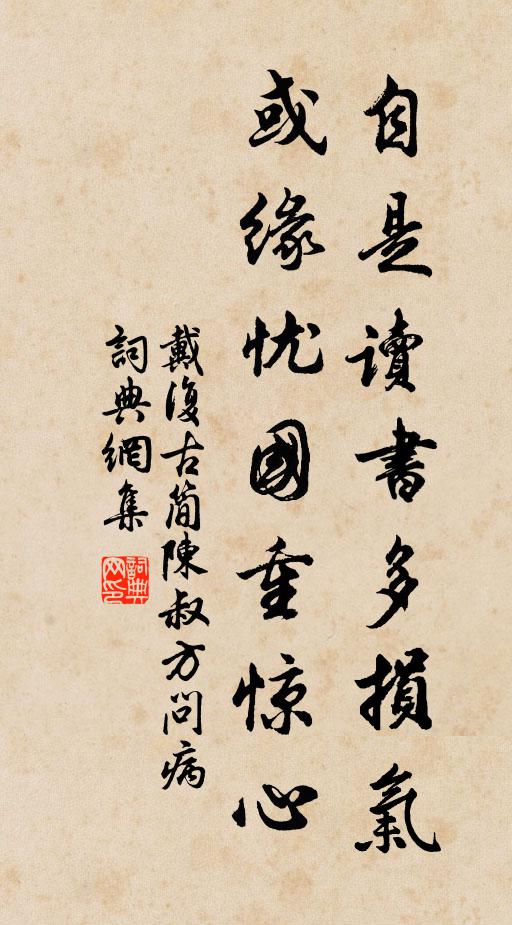 自是讀書多損氣
或缘忧國重惊心
戴復古简陳叔方問病
詞典網集
詞典网印